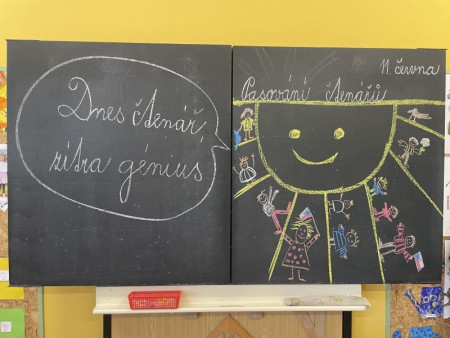 Dnes čtenář,
zítra génius
11. června
Pasování čtenářů